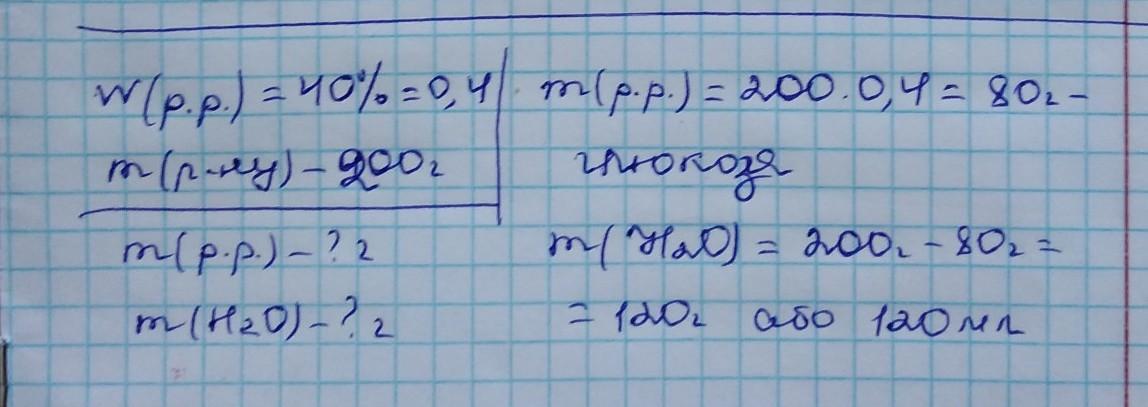 w(р.р.) = 40% = 0,4
m(р-ну) - 200г
m(р.р.) - ? г
m(H2O) - ? г
m(р.р.) = 200 . 0,4 = 80г -
глюкоза
m(H2O) = 200г - 80г =
= 120г або 120 мл